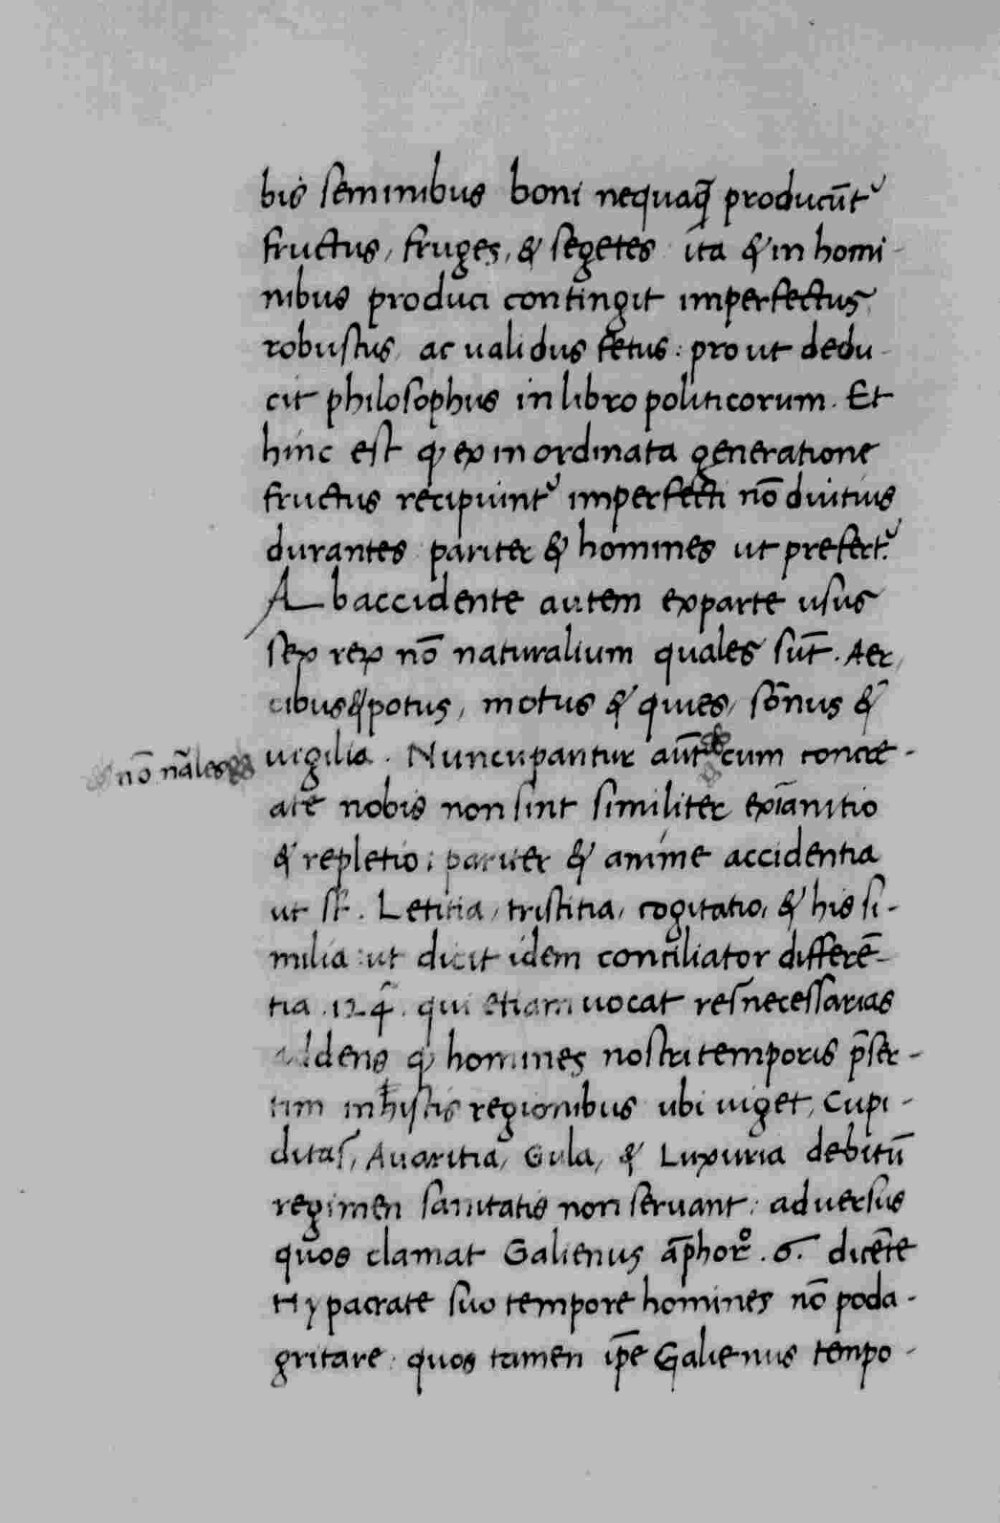 bis seminibus boni nequaq̃ producũtᷣ
fructus, fruges, & segetes ita & in homi-
nibus produci contingit imperfectus,
robustus, ac ualidus fetus: prout dedu-
cit philosophus in libro politicorum. Et
hinc est ꝙ ex inordinata generatione
fructus recipiuntᷣ imperfecti nõ diutius
durantes pariter & homines ut prefertᷣ.
Ab accidente autem ex parte usus
sex reꝝ nõ naturalium quales sũt. Aer,
cibus & potus, motus & quies, sõnus &
uigilia. Nuncupantur aũt cum concre-
nõ nãles
ate nobis non sint similiter exĩanitio
& repletio: pariter & anime accidentia
ut sꝭ. Letitia, tristitia, cogitatio, & his si-
milia: ut dicit idem conciliator differẽ-
tia .124. qui etiam uocat res necessarias
addens ꝙ homines nostri temporis p̃ser-
tim in histis regionibus ubi uiget, Cupi-
ditas, Auaritia, Gula, & Luxuria debitũ
regimen sanitatis non seruant: aduersus
quos clamat Galienus ãphorº .6. dicẽte
Hypacrate suo tempore homines nõ poda-
gritare: quos tamen ip̃e Galienus tempo-